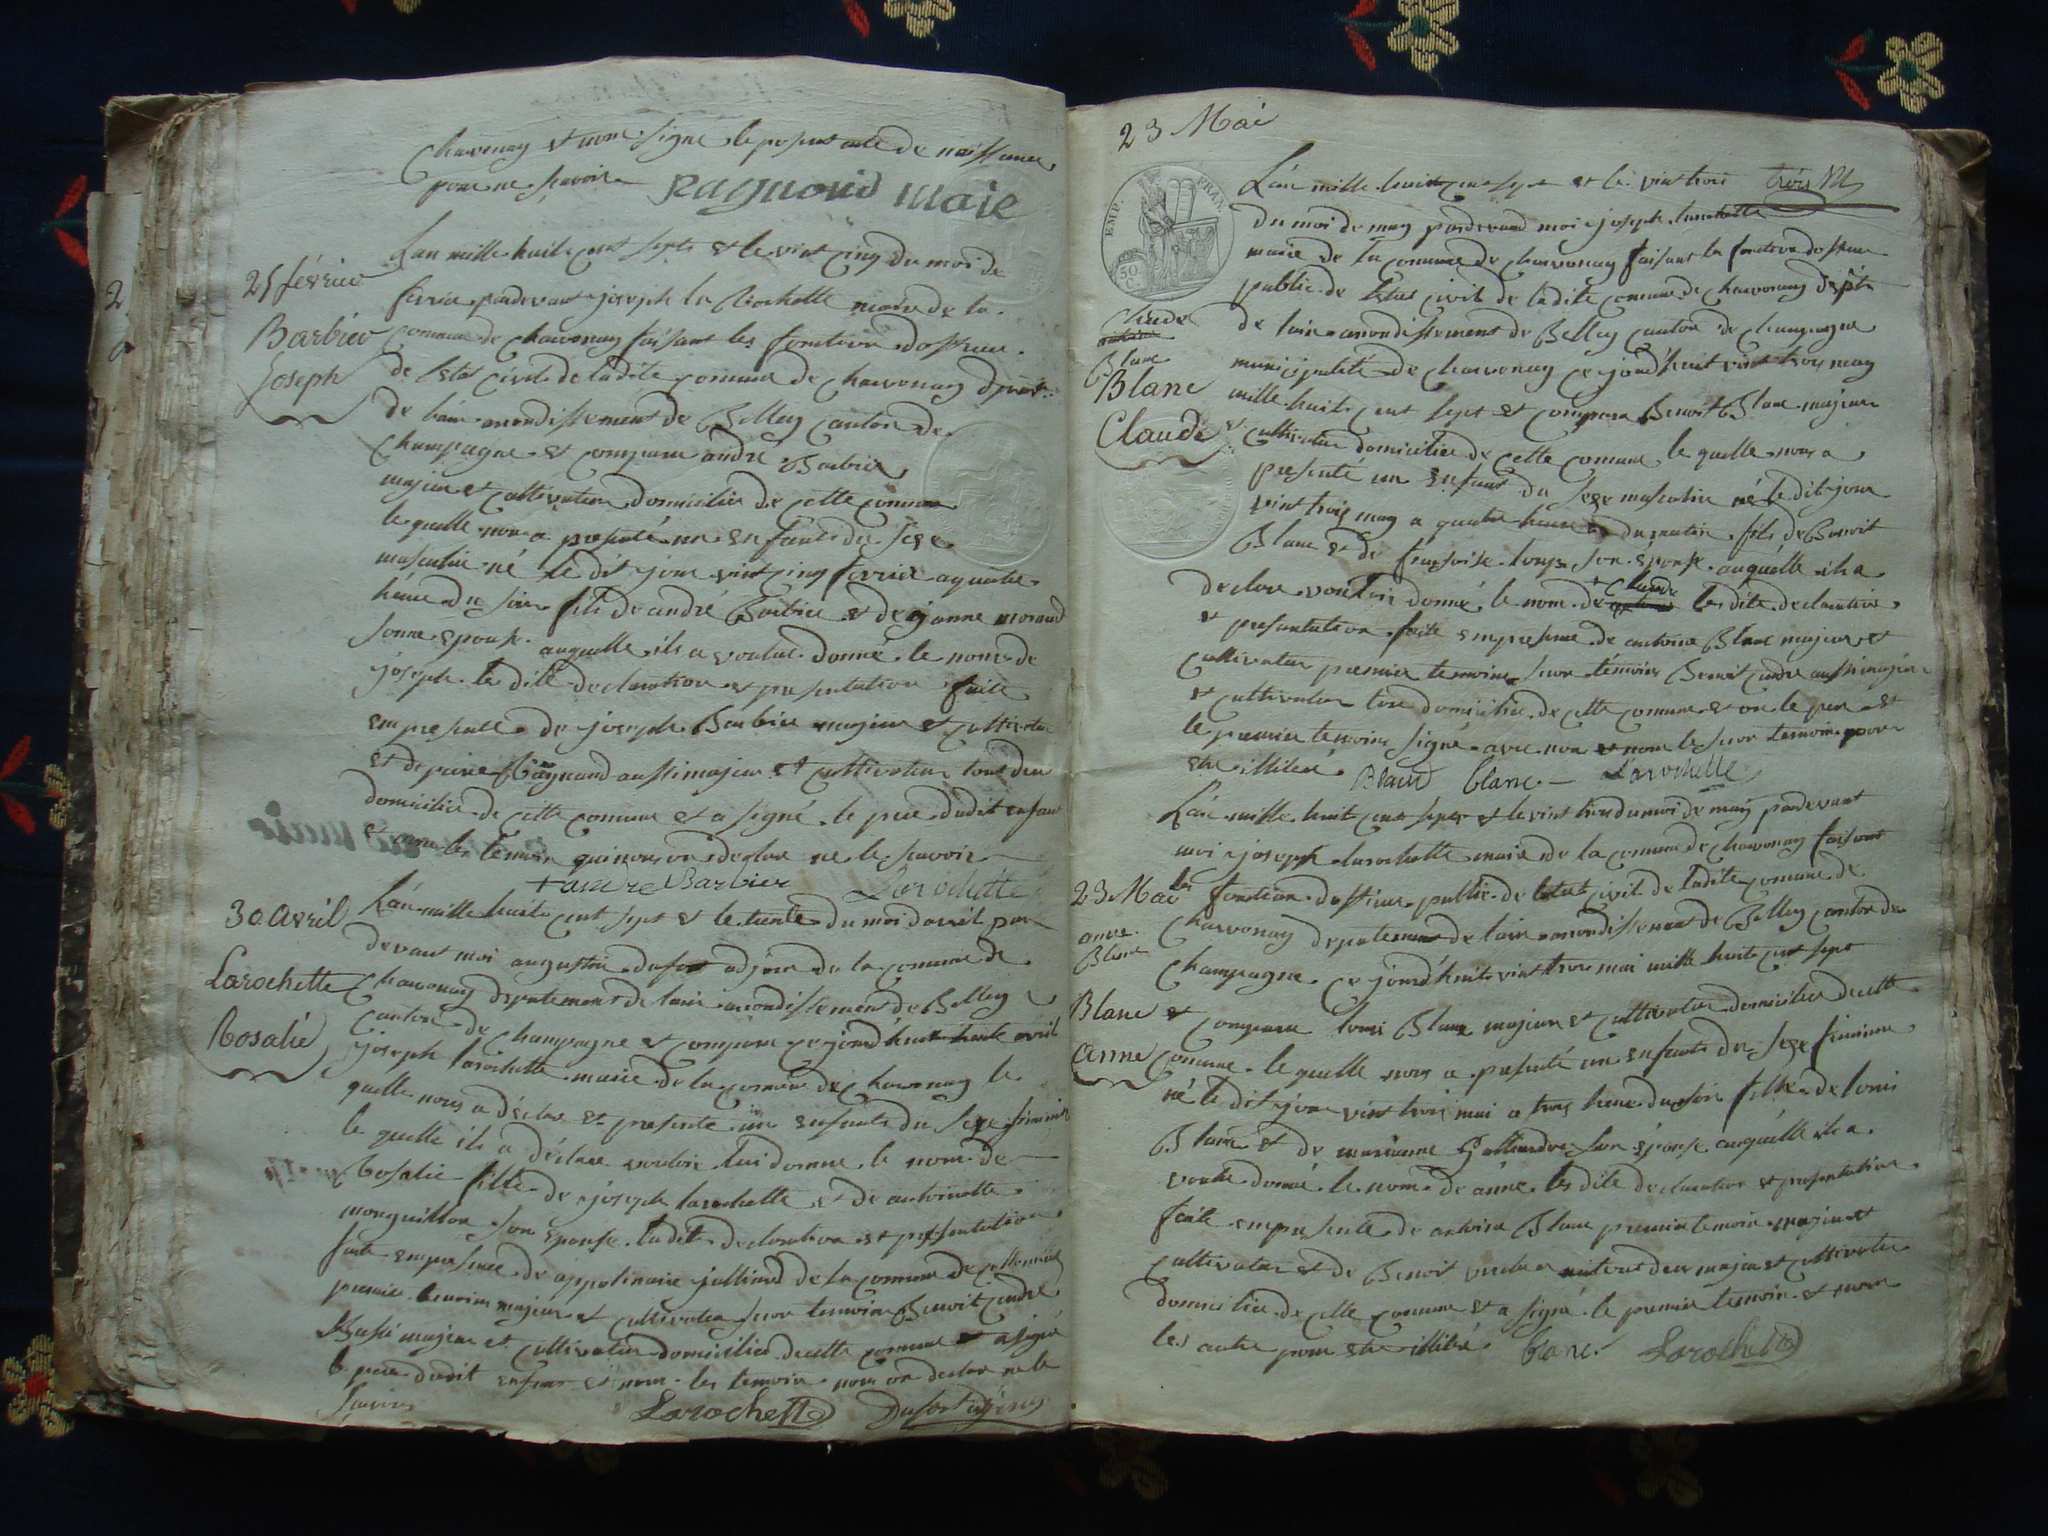 Charvonay et non signe le present acte de naissance
pour ne savoir
Raymond Maie
25 février
Barbier
Joseph
L'an mille huit cent sept et le vint cinq du moi de
fevrie pardevant joseph la Rochette maire de la
comune de Charvonay faisant les fonction
de l'etat civil de ladite comune de Charvonay
de l'ain arrondissement de Belley canton de
Champagne et comparu andré Barbier
majeur et cultivateur domicilie de cette comune
le quelle nous a presenté un enfant du sexe
masculin né le dit jour vint cinq fevrier a quatre
heure du soir fils de andré Barbier et de janne morand
sonne epouse auquelle il a voulut donné le nom de
joseph les dite declaration et presentation faite
en presence de joseph Barbier majeur et cultivateur
et de Raynaud aussi majeur et cultivateur tous deu
domicilie de cette comune et a signé le pere dudit enfant
et non les temoin qui nous on declare ne le savoir
andre Barbier Larochette
30 avril
Larochette
Rosalie
L'an mille huit cent sept et le trente du moi d'avril par
devant moi augustin dufort adjoin de la comune de
Charvonay departement de l'ain arrondissement de Belley
canton de Champagne et comparu ce jourd'huit trente avril
joseph larochette maire de la comune de Charvonay le
quelle nous a déclare et presente un enfant du sexe feminin
le quelle il a déclare vouloir lui donne le nom de
Rosalie fille de joseph larochette et de antoinette
monguillon son epouse ladite declaration et presentation
faite en presence de appolinaire julliard de la comune de
premier temoin majeur et cultivateur temoin Benoit
aussi majeur et cultivateur domicilie de cette comune et a signé
le pere dudit enfant et non les temoin nous on declare ne le
savoir
Larochette Dufort
23 Mai
EMP. FRAN.
50 C.
L'an mille huit cent sept et le vint trois
du moi de may pardevand moi joseph larochette
maire de la comune de Charvonay faisant la fonction
public de l'etat civil de ladite comune de Charvonay dept
de l'ain arrondissement de Belley canton de Champagne
municipalite de Charvonay ce jourd'huit vint trois may
Claude
Blanc
Blanc
Claude
mille huit cent sept et comparu Benoit Blanc majeur
et cultivateur domicilie de cette comune le quelle nous a
presenté un enfant du sexe masculin né le dit jour
vint trois may a quatre heure du matin fils de Benoit
Blanc et de françoise son epouse auquelle il a
declare vouloir donné le nom de Claude les dite declaration
et presentation faite en presence de antoine Blanc majeur et
cultivateur premier temoin temoin Benoit aussi majeur
et cultivateur domicilie de cette comune et on le pere et
le premier temoin signé avec nou et non le temoin pour
etre illiteré
Blanc blanc Larochette
L'an mille huit cent sept et le vint trois du moi de may pardevant
moi joseph larochette maire de la comune de Charvonay faisant
23 Mai
anne
Blanc
Blanc
anne
les fonction public de l'etat civil de ladite comune de
Charvonay departement de l'ain arrondissement de Belley canton de
Champagne ce jourd'huit vint trois mai mille huit cent sept
et comparu louis Blanc majeur et cultivateur domicilie de cette
comune le quelle nous a presenté un enfant du sexe feminin
né le dit jour vint trois mai a trois heure du soir fille de louis
Blanc et de marianne son epouse auquelle il a
voulu donné le nom de anne les dite declaration et presentation
faite en presence de antoine Blanc premier temoin majeur et
cultivateur et de Benoit tous deux majeur et cultivateur
domicilie de cette comune et a signé le premier temoin et non
les autre pour etre illiteré blanc. Larochette